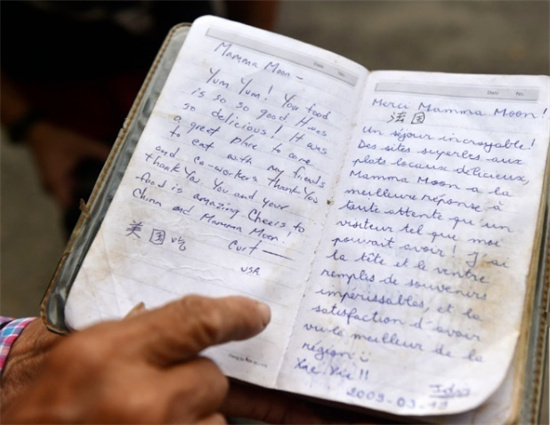 Mamma Moon -
Yum Yum! You food
is so so good It was
so delicious! It was
a great place to come
to eat with my friends
and co-workers thank You
thank You You and your
food is amazing Cheers to
China and Mamma Moon.
Curt
USA
美国吃
Date No.
Merci Mamma Moon!
法国
Un séjour incroyable!
Des sites superbes aux
plats locaux délicieux,
Mamma Moon a la
meilleure réponse à
toute attente que un
visiteur tel que moi
pouvait avoir! J'ai
la tête et le ventre
remplis de souvenirs
impérissables, et la
satisfaction d'avoir
vu le meilleur de la
région
Xie Xie !!
2009-03-13